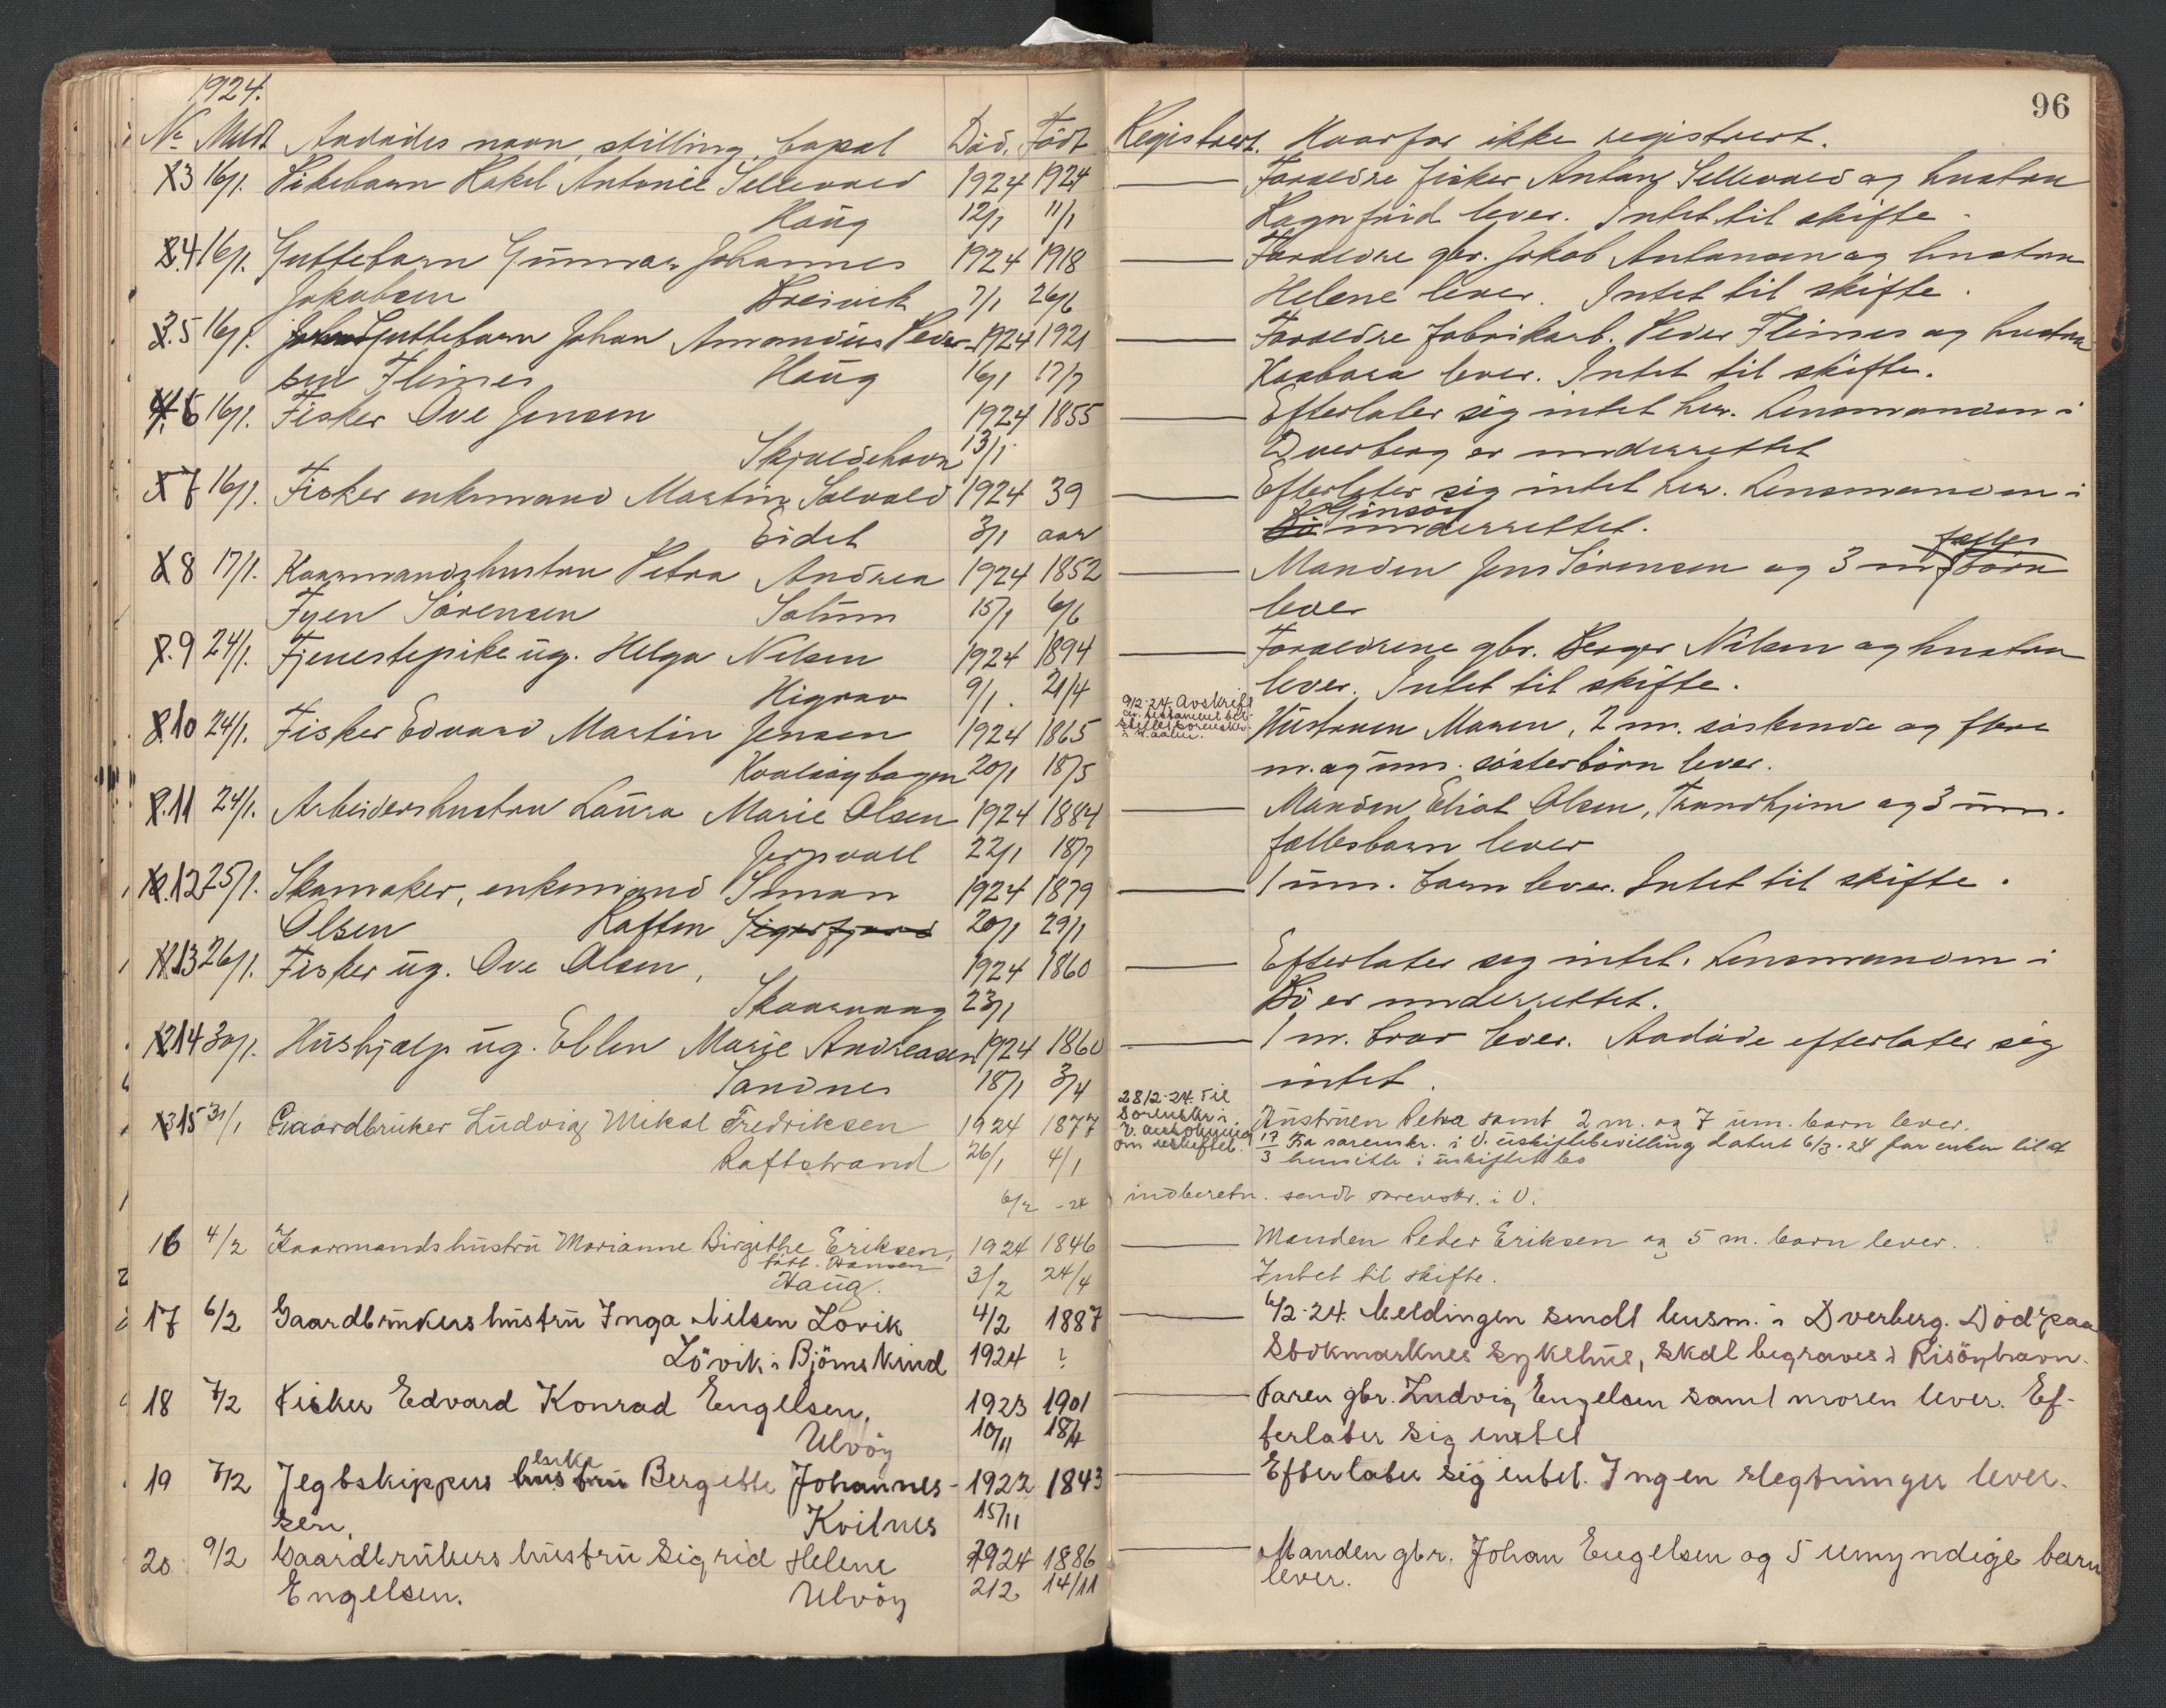 1924.
No Meldt Avdödes navn, stilling, bopæl Död. Födt
3 16/1. Pikebarn Rakel Antonie Sellevold 1924 1924
Haug 12/1 11/1
4 16/1. Guttebarn Gunnar Johannes 1924 1918
Jakobsen Breivik 7/1 26/6
5 16/1. Guttebarn Johan Amandus Peder- 1924 1921
sen Fleines Haug 16/1 17/7
6 16/1. Fisker Ove Jensen 1924 1855
Skjoldehavn 13/1
7 16/1. Fisker enkemand Martin Solvold 1924 39
Eidet 3/1 aar
8 17/1. Kaarmandshustru Petra Andrea 1924 1852
Fyen Sörensen Sålum 15/1 6/6
9 24/1. Tjenestepike ug. Helga Nilsen 1924 1894
Higrav 9/1. 21/4
10 24/1. Fisker Edvard Martin Jensen 1924 1865
20/1 18/5
11 24/1. Arbeidershustru Laura Marie Olsen 1924 1884
22/1 18/7
12 25/1. Skomaker, enkemand 1924 1879
Olsen Raften Sigerfjord 20/1 29/1
13 26/1. Fisker ug. Ove Olsen, 1924 1860
Skaarvaag 23/1
14 30/1. Hushjælp ug. Ellen Marie Andreasen 1924 1860
Sandnes 18/1 3/4
15 31/1 Gaardbruker Ludvig Mikal Fredriksen 1924 1877
Raftstrand 26/1 4/1
6/2 -24
16 4/2 Kaarmandshustru Marianne Birgithe Eriksen, 1924 1846
födt Hansen
Haug. 3/2 24/4
17 6/2 Gaardbrukershustru Inga Nilsen Lovik 4/2 1887
Lövik i Björnskind 1924 ?
18 7/2 Fisker Edvard Konrad Engelsen, 1923 1901
Ulvöy 10/11 18/4
19 7/2 Jegtskippers hustru enke Bergitte Johannes- 1922 1843
sen, Kvilnes 15/11
20 9/2 Gaardbrukers hustru Sigrid Helene 1924 1886
Engelsen. Ulvöy 2/2 14/11
96
Registrert. Hvorfor ikke registrert.
Forældre fisker Anton Sellevold og hustru
Ragnfrid lever. Intet til skifte.
Forældre gbr. Jakob Antonsen og hustru
Helene lever. Intet til skifte.
Forældre fabrikarb. Peder Fleines og hustru
Barbara lever. Intet til skifte.
Efterlater sig intet her. Lensmanden i
Dverberg er underrettet
Efterlater sig intet her. Lensmanden i
Bö Gimsöy underrettet.
Manden Jens Sörensen og 3 m. fælles börn
lever
Forældrene gbr. Berger Nilsen og hustru
lever. Intet til skifte.
9/2-24 Avskrift
av testament
Hustruen Maren, 2 m. söskende og flere
m. og um. sösterbörn lever.
Manden Eliot Olsen, Trondhjem og 3 um.
fællesbarn lever
1 um. barn lever. Intet til skifte.
Efterlater seg intet. Lensmanden i
Bö er underrettet.
1 m. bror lever. Avdöde efterlater sig
intet.
28/2-24. Til
sorenskr. i
V. ansökning
om uskiftet.
Hustruen Petra samt 2 m. og 7 um. barn lever.
17/3 Fra sorenskr. i V. uskiftebevilling datert 6/3-24 for enken til at
hensitte i uskiftet bo
indberetn. sendt sorenskr. i V.
Manden Peder Eriksen og 5 m. barn lever.
Intet til skifte.
6/2-24. Meldingen sendt lensm. i Dverberg. Död paa
Stokmarknes sykehus, skal begraves i Risöyhavn.
Faren gbr. Ludvig Engelsen samt moren lever. Ef-
terlater sig intet
Efterlater sig intet. Ingen slegtninger lever.
Manden gbr. Johan Engelsen og 5 umyndige barn
lever.